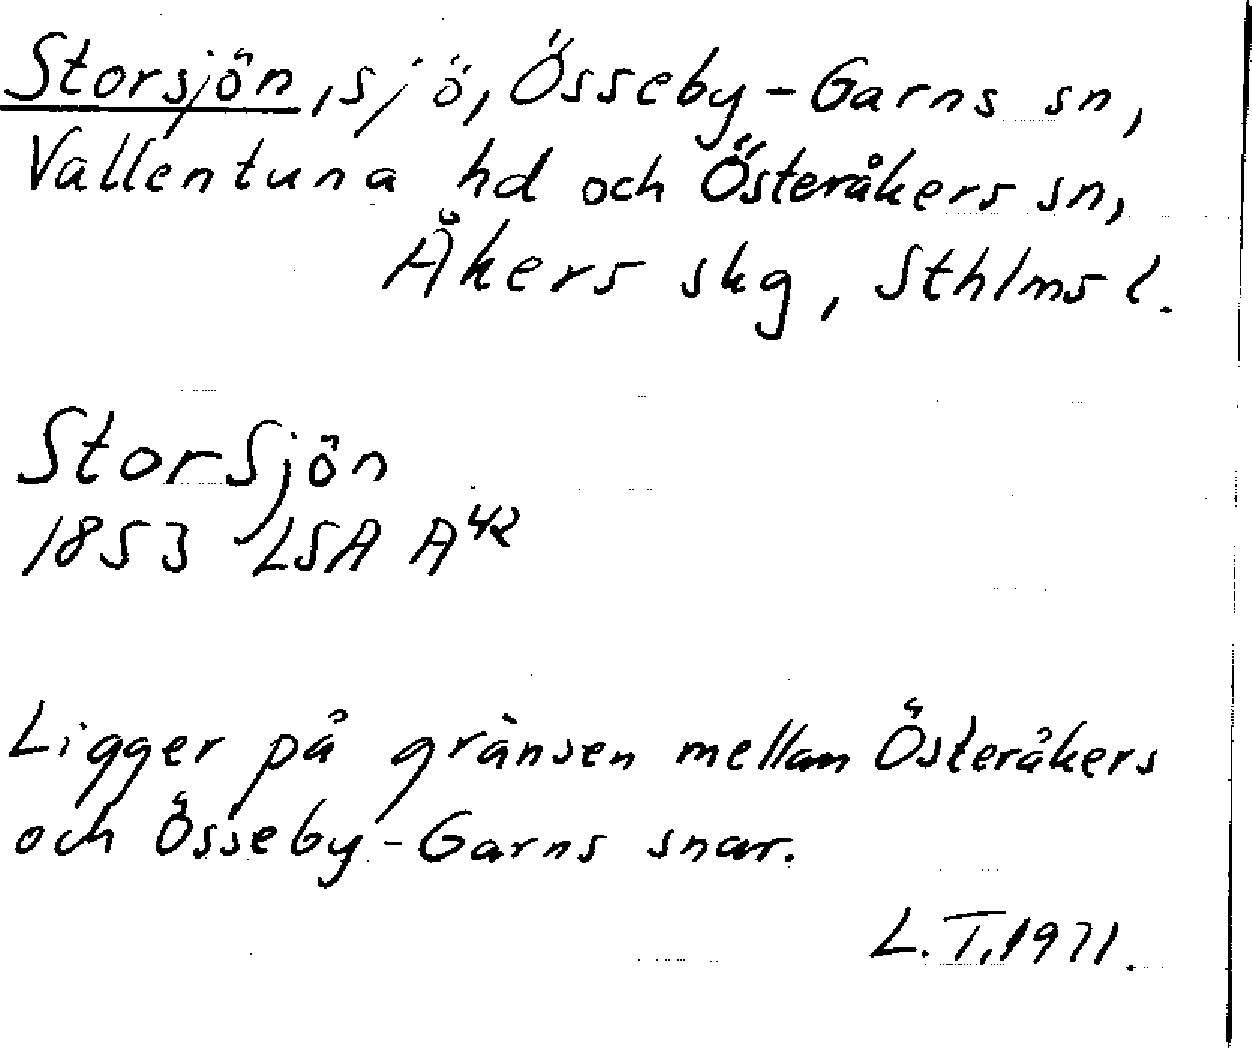 Storsjön, sjö, Össeby-Garns sn,
Vallentuna hd och Österåkers sn,
Åkers skg, Sthlms l.
Storsjön
1853 LSA A⁴²
Ligger på gränsen mellan Österåkers
och Össeby-Garns snar.
L.T. 1971.